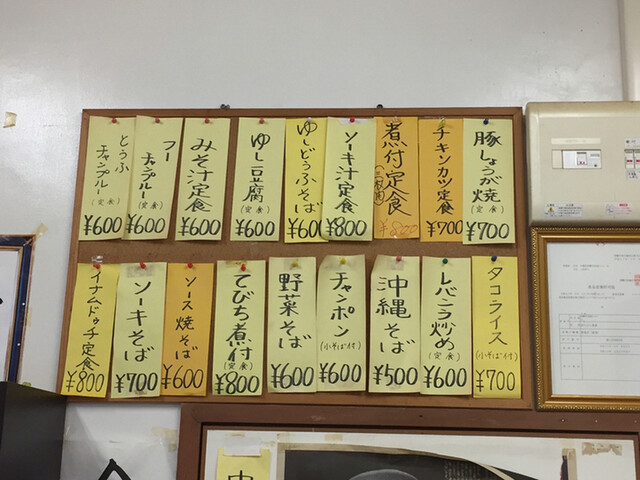 とうふ
チャンプルー
(定食)
¥600
フー
チャンプルー
(定食)
¥600
みそ汁定食
¥600
ゆし豆腐
(定食)
¥600
ゆしどうふそば
¥600
ソーキ汁定食
¥800
煮付定食
¥800
チキンカツ定食
¥700
豚しょうが焼
(定食)
¥700
イナムドゥチ定食
¥800
ソーキそば
¥700
ソース焼そば
¥600
てびち煮付
(定食)
¥800
野菜そば
¥600
チャンポン
(小そば付)
¥600
沖縄そば
¥500
レバニラ炒め
(定食)
¥600
タコライス
(小そば付)
¥700